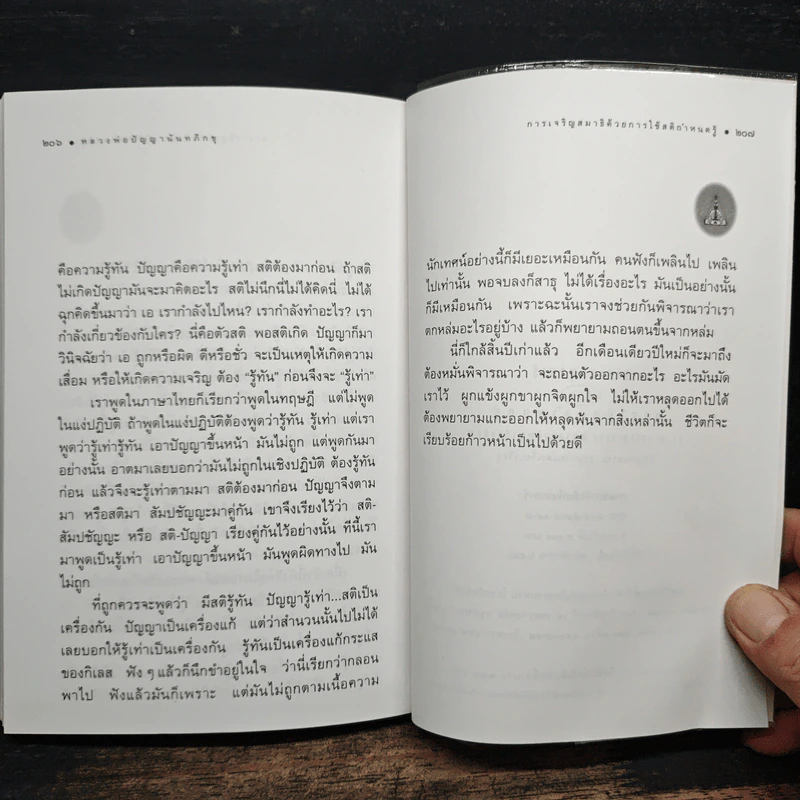 ๒๐๖ ● หลวงพ่อปัญญานันทภิกขุ
คือความรู้ทัน ปัญญาคือความรู้เท่า สติต้องมาก่อน ถ้าสติ
ไม่เกิดปัญญามันจะมาคิดอะไร สติไม่นึกนี่ไม่ได้คิดนี่ ไม่ได้
ฉุกคิดขึ้นมาว่า เอ เรากำลังไปไหน? เรากำลังทำอะไร? เรา
กำลังเกี่ยวข้องกับใคร? นี่คือตัวสติ พอสติเกิด ปัญญาก็มา
วินิจฉัยว่า เอ ถูกหรือผิด ดีหรือชั่ว จะเป็นเหตุให้เกิดความ
เสื่อม หรือให้เกิดความเจริญ ต้อง “รู้ทัน” ก่อนจึงจะ “รู้เท่า”
เราพูดในภาษาไทยก็เรียกว่าพูดในทฤษฎี แต่ไม่พูด
ในแง่ปฏิบัติ ถ้าพูดในแง่ปฏิบัติต้องพูดว่ารู้ทัน รู้เท่า แต่เรา
พูดว่ารู้เท่ารู้ทัน เอาปัญญาขึ้นหน้า มันไม่ถูก แต่พูดกันมา
อย่างนั้น อาตมาเลยบอกว่ามันไม่ถูกในเชิงปฏิบัติ ต้องรู้ทัน
ก่อน แล้วจึงจะรู้เท่าตามมา สติต้องมาก่อน ปัญญาจึงตาม
มา หรือสติมา สัมปชัญญะมาคู่กัน เขาจึงเรียงไว้ว่า สติ-
สัมปชัญญะ หรือ สติ-ปัญญา เรียงคู่กันไว้อย่างนั้น ทีนี้เรา
มาพูดเป็นรู้เท่า เอาปัญญาขึ้นหน้า มันพูดผิดทางไป มัน
ไม่ถูก
ที่ถูกควรจะพูดว่า มีสติรู้ทัน ปัญญารู้เท่า...สติเป็น
เครื่องกัน ปัญญาเป็นเครื่องแก้ แต่ว่าสำนวนนั้นไปไม่ได้
เลยบอกให้รู้เท่าเป็นเครื่องกัน รู้ทันเป็นเครื่องแก้กระแส
ของกิเลส ฟัง ๆ แล้วก็นึกขำอยู่ในใจ ว่านี่เรียกว่ากลอน
พาไป ฟังแล้วมันก็เพราะ แต่มันไม่ถูกตามเนื้อความ
การเจริญสมาธิด้วยการใช้สติกำหนดรู้ ● ๒๐๗
นักเทศน์อย่างนี้ก็มีเยอะเหมือนกัน คนฟังก็เพลินไป เพลิน
ไปเท่านั้น พอจบลงก็สาธุ ไม่ได้เรื่องอะไร มันเป็นอย่างนั้น
ก็มีเหมือนกัน เพราะฉะนั้นเราจงช่วยกันพิจารณาว่าเรา
ตกหล่มอะไรอยู่บ้าง แล้วก็พยายามถอนตนขึ้นจากหล่ม
นี่ก็ใกล้สิ้นปีเก่าแล้ว อีกเดือนเดียวปีใหม่ก็จะมาถึง
ต้องหมั่นพิจารณาว่า จะถอนตัวออกจากอะไร อะไรมันมัด
เราไว้ ผูกแข้งผูกขาผูกจิตผูกใจ ไม่ให้เราหลุดออกไปได้
ต้องพยายามแกะออกให้หลุดพ้นจากสิ่งเหล่านั้น ชีวิตก็จะ
เรียบร้อยก้าวหน้าเป็นไปด้วยดี